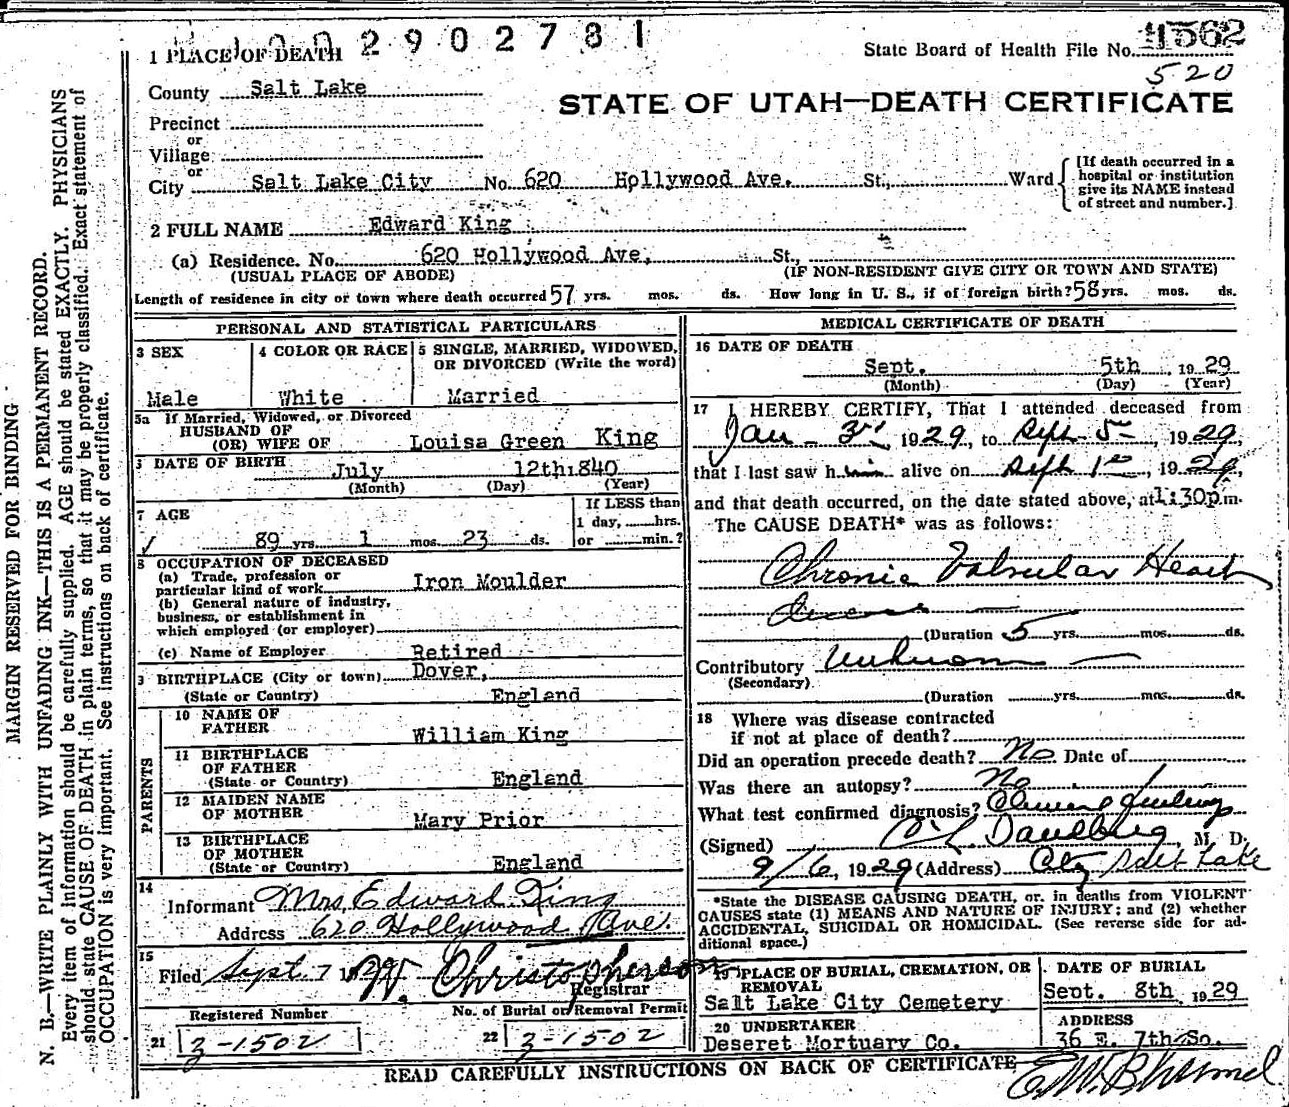 2902781
1 PLACE OF DEATH
State Board of Health File No. 1562
520
County Salt Lake
STATE OF UTAH—DEATH CERTIFICATE
Precinct
or
Village
or
City Salt Lake City No. 620 Hollywood Ave. St., Ward
[If death occurred in a hospital or institution give its NAME instead of street and number.]
2 FULL NAME Edward King
(a) Residence. No. 620 Hollywood Ave, St.,
(USUAL PLACE OF ABODE) (IF NON-RESIDENT GIVE CITY OR TOWN AND STATE)
Length of residence in city or town where death occurred 57 yrs. mos. ds. How long in U. S., if of foreign birth? 58 yrs. mos. ds.
PERSONAL AND STATISTICAL PARTICULARS
3 SEX
Male
4 COLOR OR RACE
White
5 SINGLE, MARRIED, WIDOWED,
OR DIVORCED (Write the word)
Married
5a If Married, Widowed, or Divorced
HUSBAND OF
(OR) WIFE OF Louisa Green King
DATE OF BIRTH July 12th 1840
(Month) (Day) (Year)
7 AGE
89 yrs 1 mos. 23 ds.
If LESS than
1 day, hrs.
or min.?
8 OCCUPATION OF DECEASED
(a) Trade, profession or
particular kind of work Iron Moulder
(b) General nature of industry,
business, or establishment in
which employed (or employer)
(c) Name of Employer Retired
BIRTHPLACE (City or town) Dover,
(State or Country) England
PARENTS
10 NAME OF
FATHER William King
11 BIRTHPLACE
OF FATHER
(State or Country) England
12 MAIDEN NAME
OF MOTHER Mary Prior
13 BIRTHPLACE
OF MOTHER
(State or Country) England
14
Informant Mrs. Edward King
Address 620 Hollywood Ave.
15
Filed Sept. 7 1929 W. Christopherson
Registrar
Registered Number
No. of Burial or Removal Permit
21 3-1502
22 3-1502
MEDICAL CERTIFICATE OF DEATH
16 DATE OF DEATH
Sept. 5th, 1929
(Month) (Day) (Year)
17 I HEREBY CERTIFY, That I attended deceased from
Jan 3rd 1929, to Sept 5, 1929,
that I last saw him alive on Sept 1, 1929,
and that death occurred, on the date stated above, at 1:30 p.m.
The CAUSE DEATH* was as follows:
Chronic Valvular Heart
Disease
(Duration 5 yrs. mos. ds.
Contributory Unknown
(Secondary)
(Duration yrs. mos. ds.
18 Where was disease contracted
if not at place of death?
Did an operation precede death? No Date of
Was there an autopsy? No
What test confirmed diagnosis? Clinical findings
(Signed) Daulberg M. D.
9/6, 1929 (Address) City Salt Lake
*State the DISEASE CAUSING DEATH, or, in deaths from VIOLENT
CAUSES state (1) MEANS AND NATURE OF INJURY; and (2) whether
ACCIDENTAL, SUICIDAL OR HOMICIDAL. (See reverse side for ad-
ditional space.)
19 PLACE OF BURIAL, CREMATION, OR
REMOVAL
Salt Lake City Cemetery
DATE OF BURIAL
Sept. 8th, 1929
20 UNDERTAKER
Deseret Mortuary Co.
ADDRESS
36 E. 7th So.
READ CAREFULLY INSTRUCTIONS ON BACK OF CERTIFICATE
MARGIN RESERVED FOR BINDING
N. B.—WRITE PLAINLY WITH UNFADING INK—THIS IS A PERMANENT RECORD.
Every item of information should be carefully supplied. AGE should be stated EXACTLY. PHYSICIANS
should state CAUSE OF DEATH in plain terms, so that it may be properly classified. Exact statement of
OCCUPATION is very important. See instructions on back of certificate.